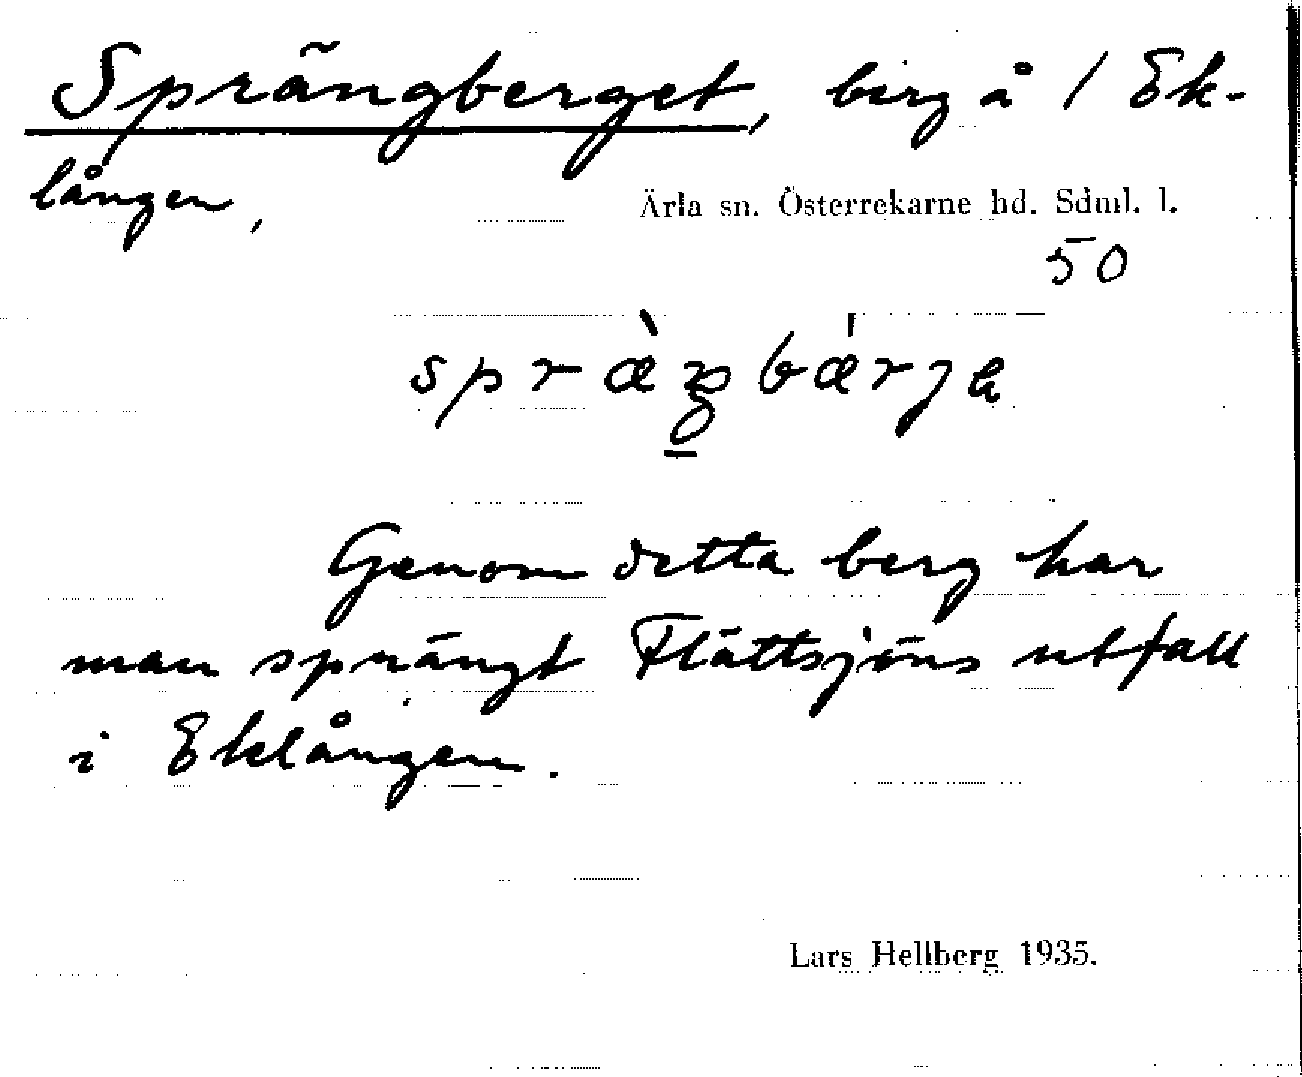 Sprängberget, berg å 1 Ek-
lången,
Ärla sn. Österrekarne hd. Sdml. l.
50
Genom detta berg har
man sprängt Flättsjöns utfall
i Eklången.
Lars Hellberg 1935.